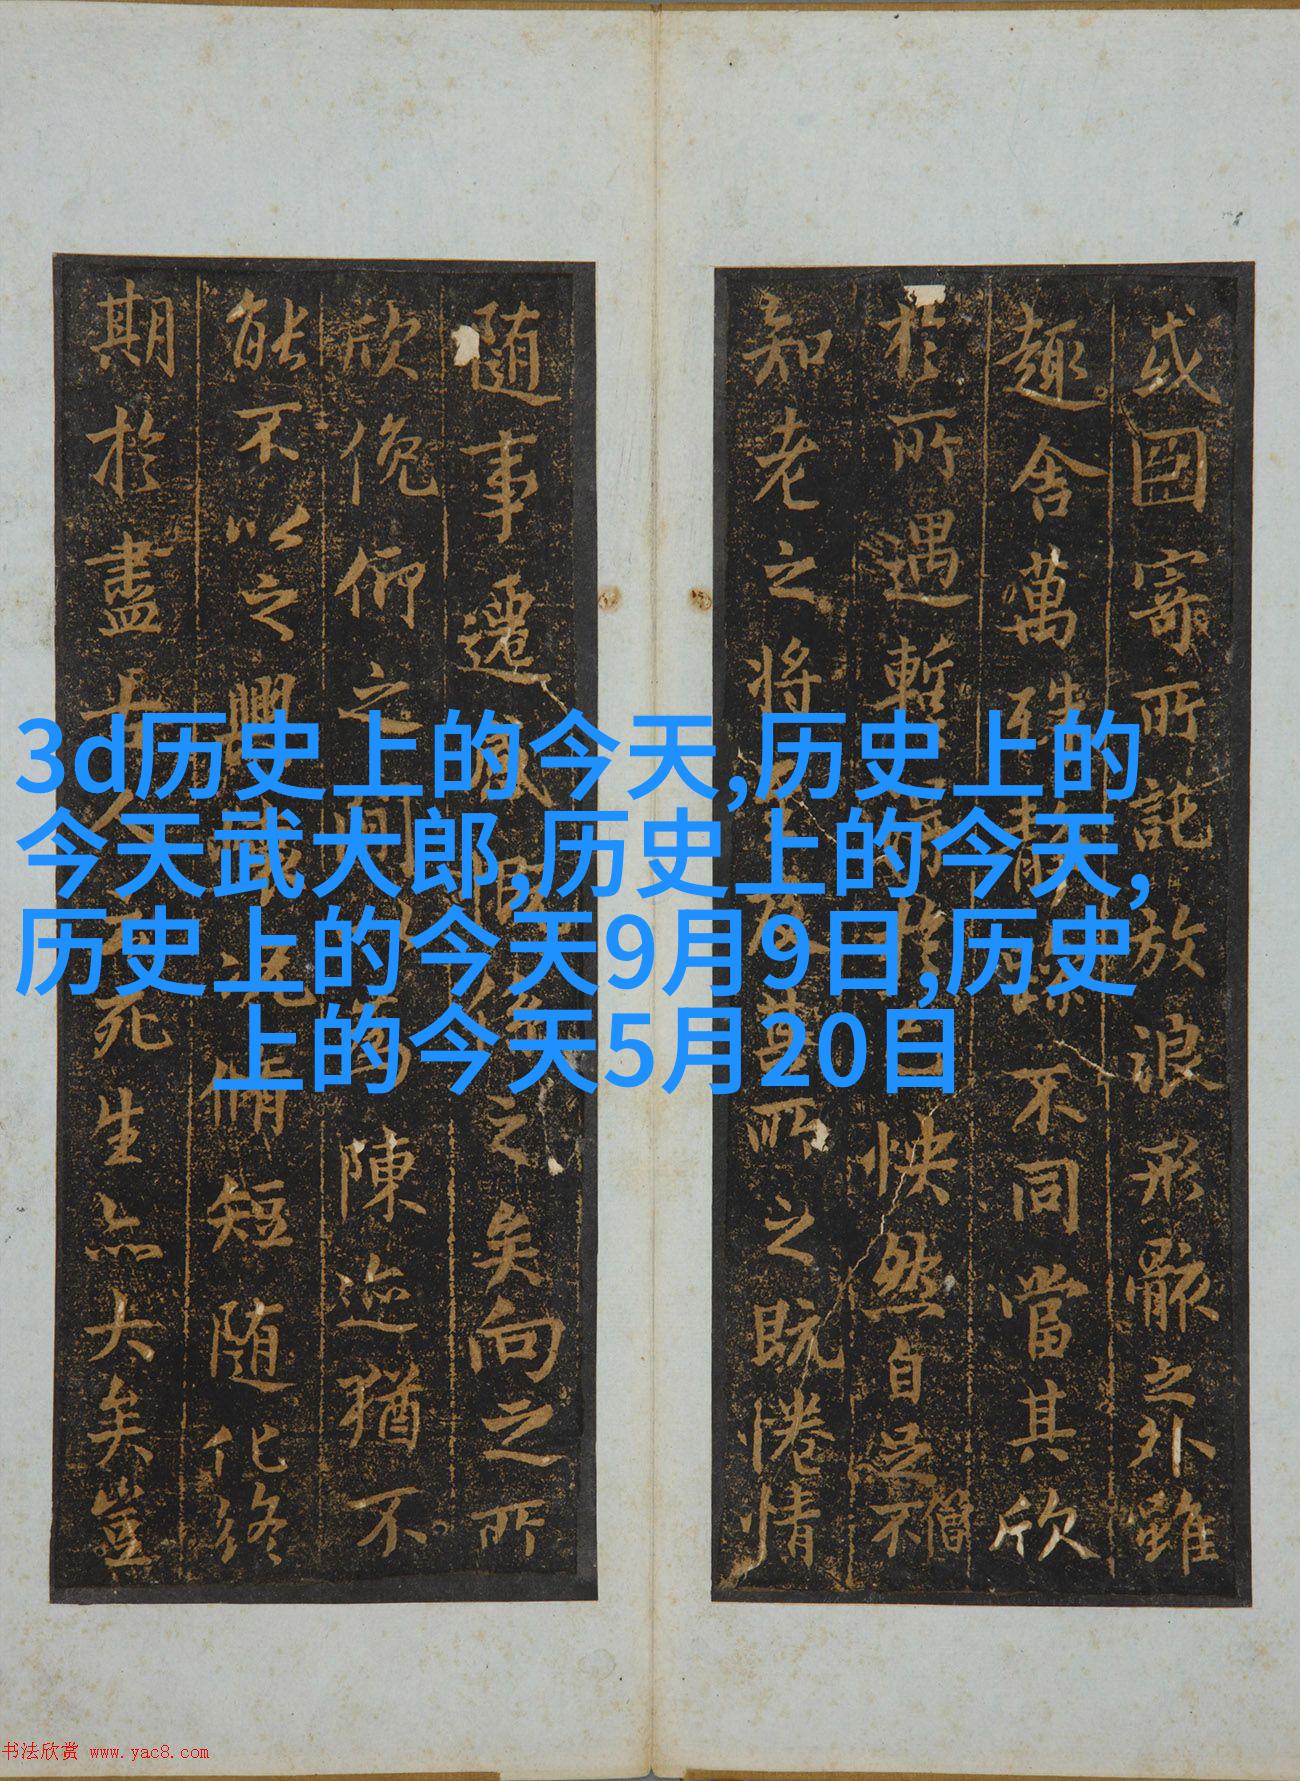 3d历史上的今天,历史上的
今天武大郎,历史上的今天,
历史上的今天9月9日,历史
上的今天5月20日
或因寄所託放浪形骸之外雖
趣舍萬殊靜躁不同當其欣
於所遇暫得於己怏然自足不僧
知老之將至及其所之既惓情
隨事遷感慨係之矣向之所
欣俛仰之閒以為陳迹猶不
能不以之興懷況脩短隨化終
期於盡古人云死生亦大矣豈
书法欣赏 www.yac8.com